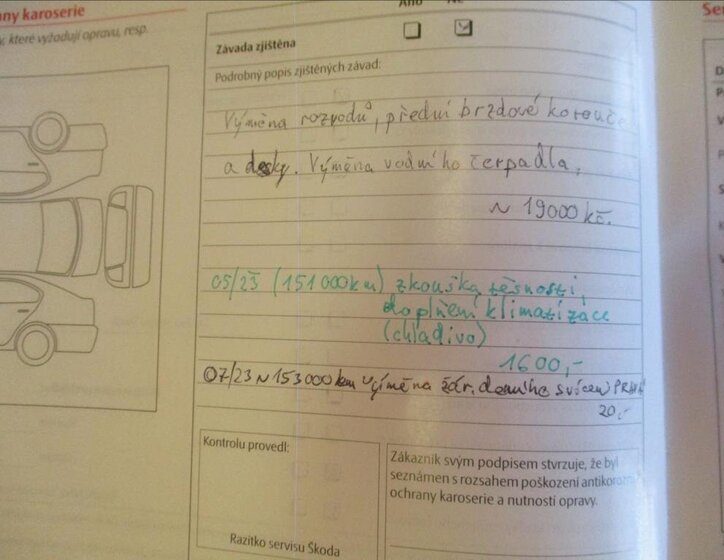 ny karoserie
které vyžadují opravu, resp.
Ano Ne
Závada zjištěna
Podrobný popis zjištěných závad:
Výměna rozvodů, přední brzdové kotouče
a desky. Výměna vodního čerpadla,
~ 19000 kč.
05/23 (151 000km) zkouška těsnosti,
doplnění klimatizace
(chladivo)
1600,-
07/23 ~ 153000 km výměna žár. denního svícení
20,-
Kontrolu provedl:
Razítko servisu Škoda
Zákazník svým podpisem stvrzuje, že byl
seznámen s rozsahem poškození
ochrany karoserie a nutností opravy.